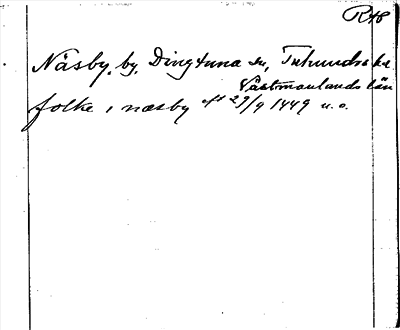 R48
Näsby, by, Dingtuna sn, Tuhundra hd
Västmanlands län
folke i næsby 29/9 1449 u.o.